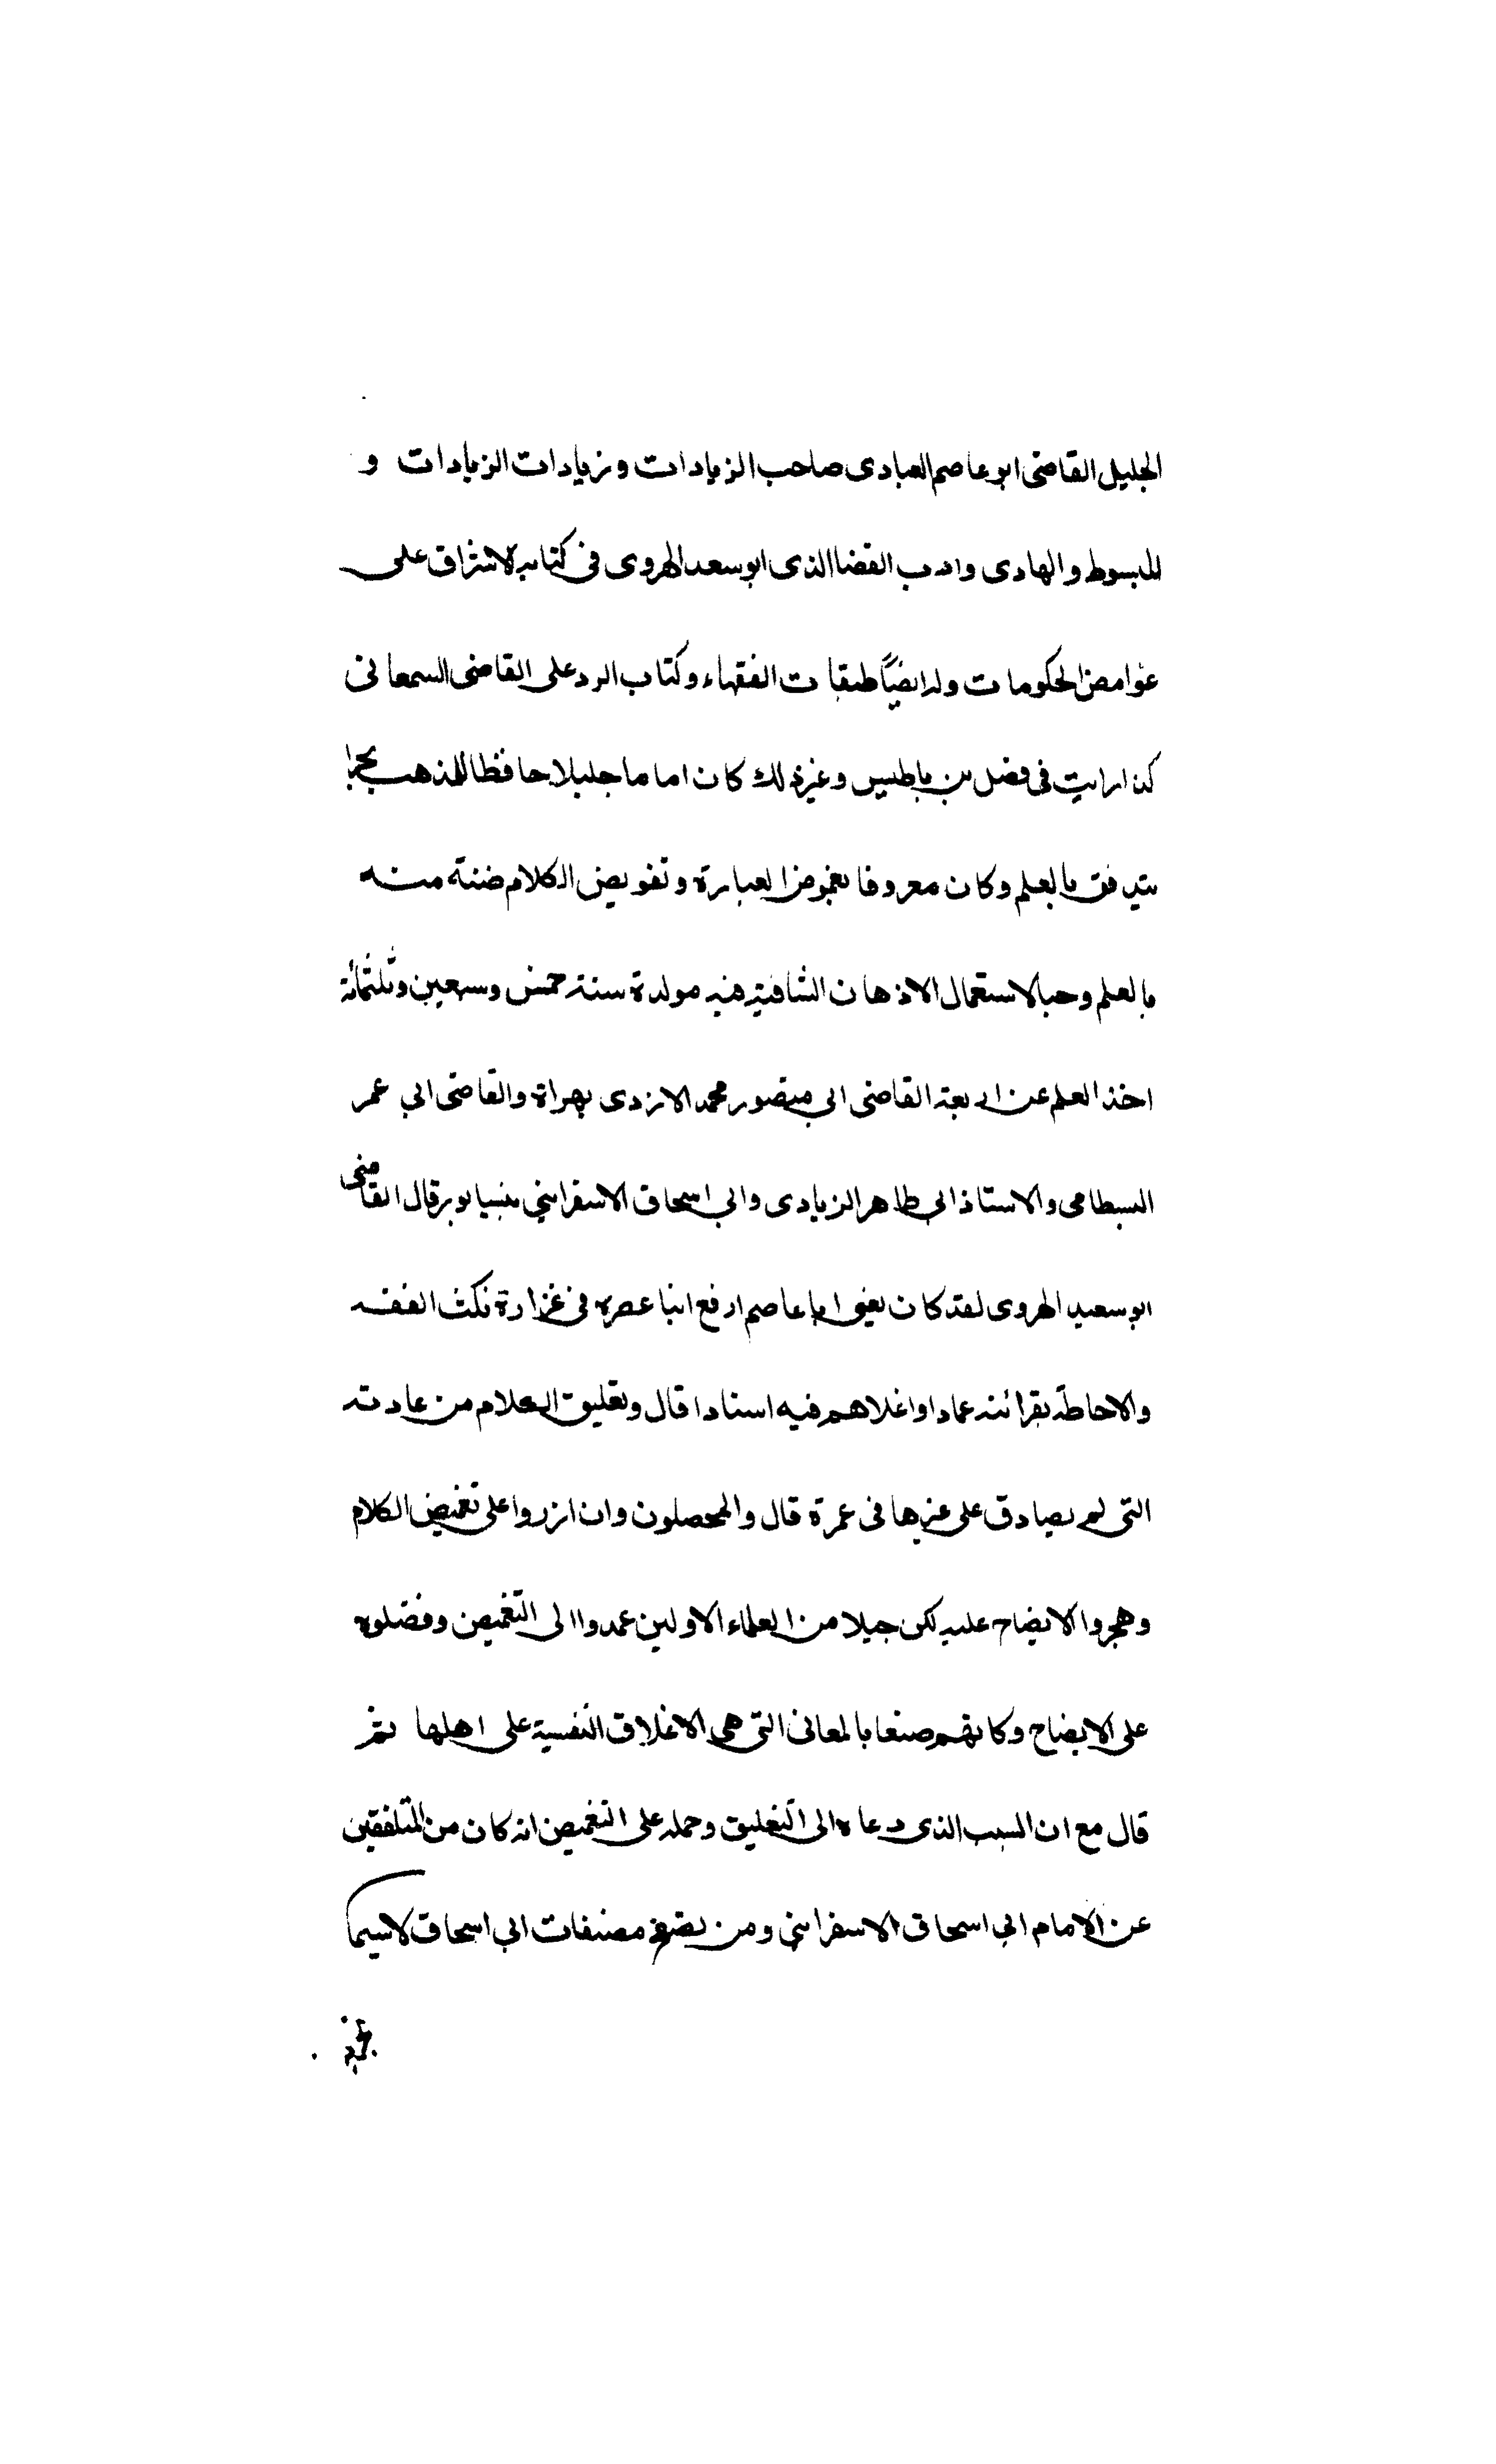 الجليل القاضى ابو عاصم العبادى صاحب الزيادات وزيادات الزيادات و
المبسوط والهادى وادب القضا الذى ابو سعد الهروى فى كتابه الاشراق على
غوامض الحكومات وله ايضاً طبقات الفقهاء وكتاب الرد على القاضى السمعانى
كذا رايت فى فضل بن باطيس وغير ذلك كان اماما جليلا حافظا للمذهب بحرا
يتدفق بالعلم وكان معروفا بغموض العبارة وتفويض الكلام ضنة منه
بالعلم وحبا لاستعمال الاذهان الشافية فيه مولدة سنة خمس وسبعين وثلثمائة
اخذ العلم عن اربعة القاضى ابى منصور محمد الازدى بهراة والقاضى ابى عمر
البسطامى والاستاذ ابى طاهر الزيادى وابى اسحاق الاسفراينى بنيسابور قال القاضى
ابو سعيد الهروى لقد كان يعنى ابا عاصم ارفع ابنا عصره فى غزارة نكث الفقه
والاحاطة بقرائنه عمادا واغلاهم فيه اسنادا قال وتغليق الكلام من عادته
التى لم يصادق على غيرها فى عمرة قال والمحصلون وان ازروا على تغميض الكلام
وهجروا الايضاح عليه لكن جيلا من العلماء الاولين عمدوا الى التغميض وفضلوه
على الايضاح وكانهم صنعا بالمعانى التى هى الاغلاق النفسية على اهلها ثم
قال مع ان السبب الذى دعاه الى التغليق وحمله على التغميض انه كان من المتلفقين
عن الامام ابى اسحاق الاسفراينى ومن تصفح مصنفات ابى اسحاق لاسيما